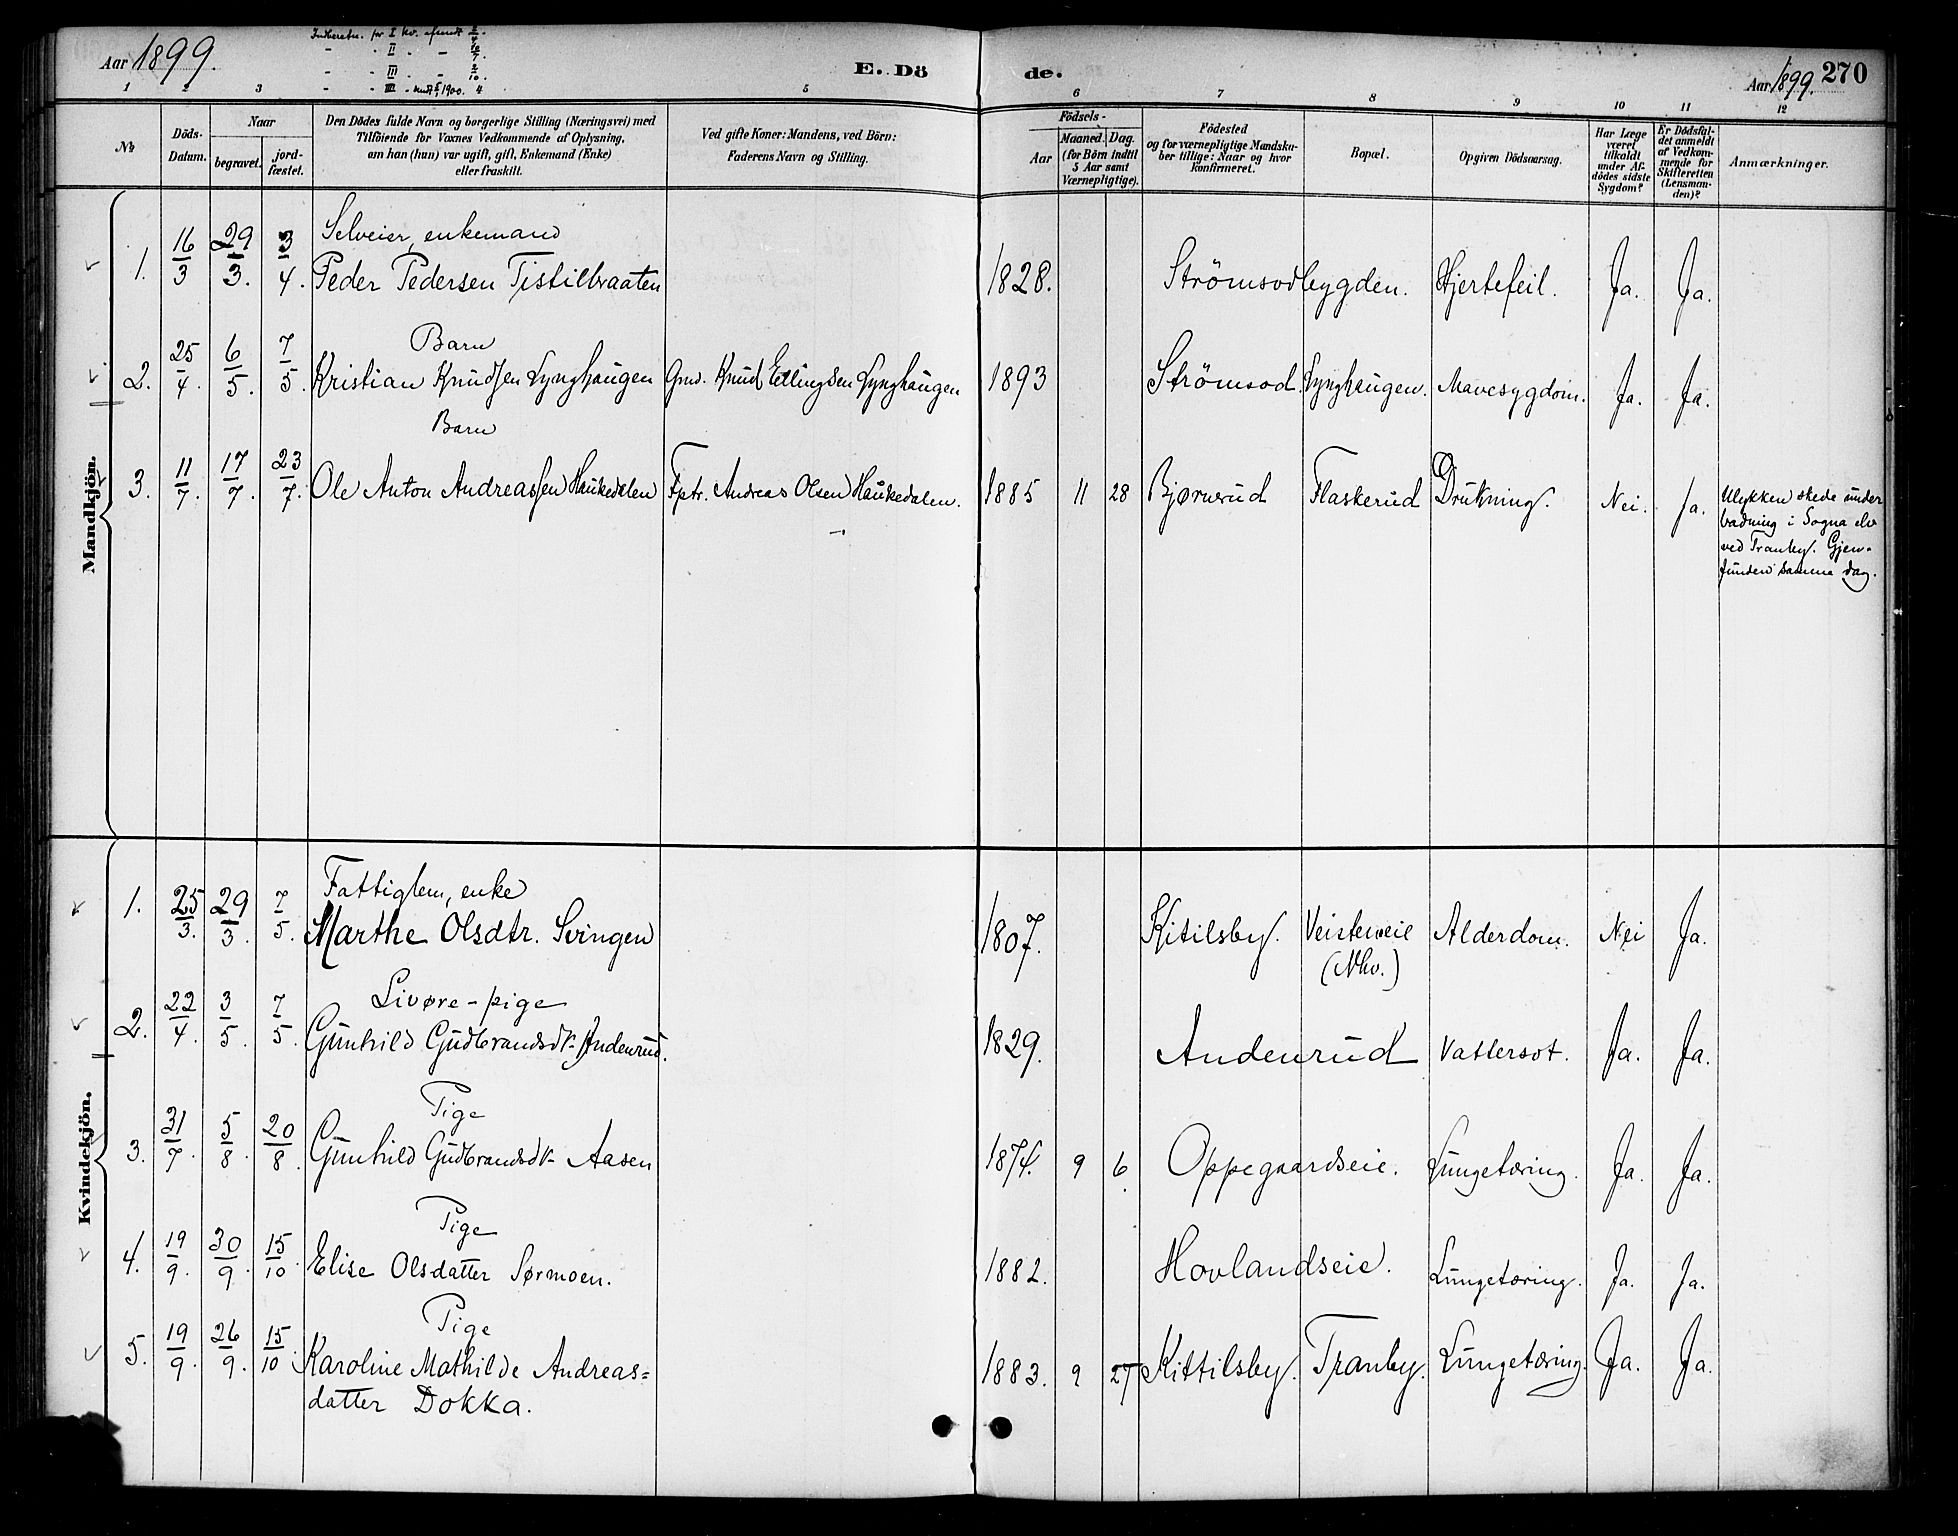 Aar 1899.
Indberetn. for I kv. afsendt 5/4.
- - II - - 10/7.
- - III - - 2/10.
- - IIII - 1900. 4
E. Dö de.
Aar 1899. 270
1 2 3 5 6 7 8 9 10 11 12
№ Döds-Datum. Naar begravet. jord-fæstet.
Den Dödes fulde Navn og borgerlige Stilling (Næringsvei) med
Tilföiende for Voxnes Vedkommende af Oplysning,
om han (hun) var ugift, gift, Enkemand (Enke)
eller fraskilt.
Ved gifte Koner: Mandens, ved Börn:
Faderens Navn og Stilling.
Födsels-
Aar Maaned. Dag.
(for Börn indtil
5 Aar samt
Værnepligtige).
Födested
og for værnepligtige Mandska-
ber tillige: Naar og hvor
konfirmeret.
Bopæl.
Opgiven Dödsaarsag.
Har Læge
været
tilkaldt
under Af-
dödes sidste
Sygdom?
Er Dödsfal-
det anmeldt
af Vedkom-
mende for
Skifteretten
(Lensman-
den)?
Anmærkninger.
Mandkjön.
Selveier, enkemand
1. 16/3 29/3. 3/4. Peder Pedersen Tistilbraaten 1828. Strömsodbygden. Hjertefeil. Ja. Ja.
Barn
2. 25/4. 6/5. 7/5. Kristian Knudsen Lynghaugen Grd. Knud Ellingsen Lynghaugen 1893 Strömsod. Lynghaugen. Mavesygdom. Ja. Ja.
Barn
3. 11/7. 17/7. 23/7. Ole Anton Andreassen Haukedalen Fptr. Andreas Olsen Haukedalen. 1885 11 28 Bjørnerud Flaskerud Drukning. Nei. Ja.
Ulykken skede under
badning i Sogna elv
ved Tranby. Gjen-
funden samme dag.
Kvindekjön.
Fattiglem, enke
1. 25/3. 29/3. 7/5. Marthe Olsdtr. Svingen 1807. Kitilsby. Veisteneie Alderdom. Nei Ja.
(Nhv.)
Livøre-pige
2. 22/4. 3/5. 7/5. Gunhild Gudbrandsdtr Andenrud. 1829. Andenrud Vattersot. Ja. Ja.
Pige
3. 31/7. 5/8. 20/8. Gunhild Gudbrandsdtr Aasen 1874. 9 6. Oppegaardseie. Lungetæring. Ja. Ja.
Pige
4. 19/9. 30/9. 15/10. Elise Olsdatter Sørmoen. 1882. Hovlandseie. Lungetæring. Ja. Ja.
Pige
5. 19/9. 26/9. 15/10. Karoline Mathilde Andreas= 1883. 9 27 Kittilsby. Tranby. Lungetæring. Ja. Ja.
datter Dokka.